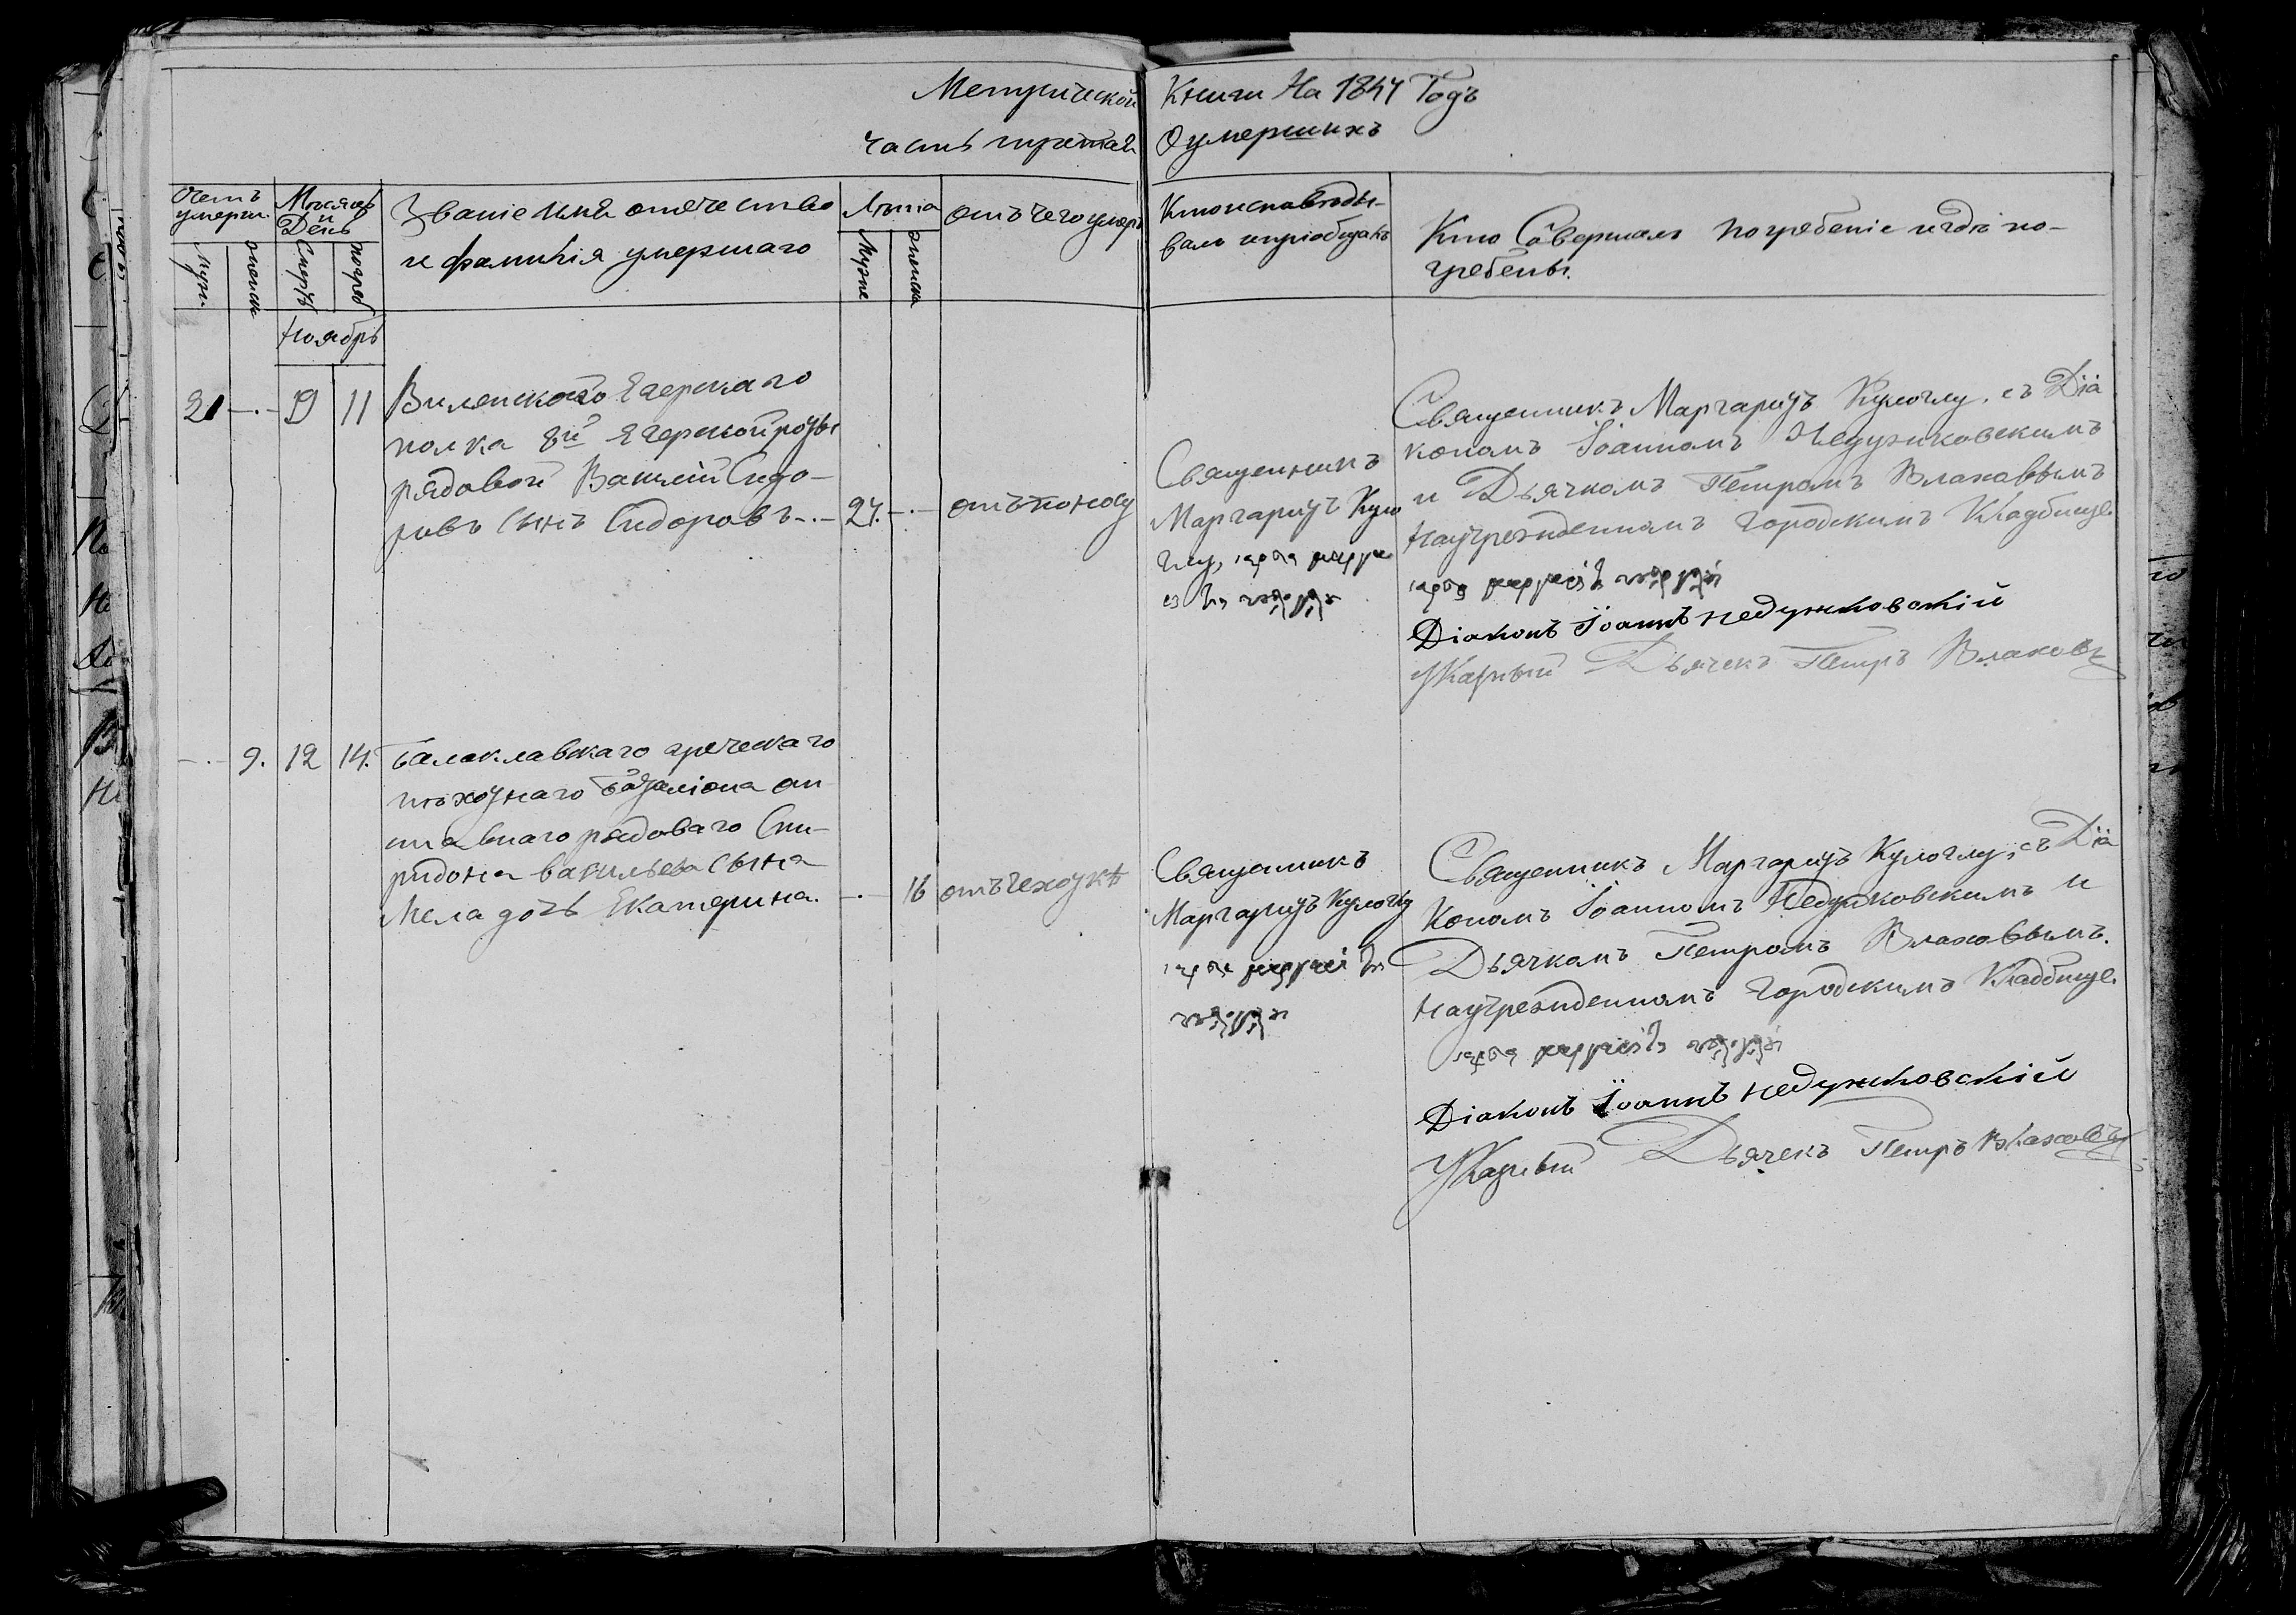 Метрической Книги На 1847 Годъ
часть третая О умершихъ
Счетъ умерш.
Муж.
женск
Мѣсяцъ и День
Смерть
погреб
Званіе имя отечество
и фамилія умершаго
Лѣта
Муже
женска
отъ чего умеръ
Кто исповѣды-
валъ и пріобщалъ
Кто Совершалъ погребеніе и гдѣ по-
гребены.
Ноябрь
21 -.- 9 11
Виленскаго Егерскаго
полка 8й Егерской роты
рядовой Василій Сидо-
ровъ Сынъ Сидоровъ -.-
24. -.-
отъ поносу
Священникъ
Маргаритъ Куло
глу,
Священникъ Маргаритъ Кулоглу, съ Діа
кономъ Іоанномъ Недужковскимъ
и Дьячкомъ Петромъ Влаховымъ
На учрежденномъ Городскимъ Кладбище.
Діаконъ Іоаннъ Недужковскій
Указный Дьячекъ Петръ Влаховъ
-.- 9. 12 14.
Балаклавскаго греческаго
пѣхотнаго баталіона от
ставнаго рядоваго Спи-
ридона васильева сына
Мела дочь Екатерина.
-.- 16
отъ чехотки
Священникъ
Маргаритъ Кулоглу
Священникъ Маргаритъ Кулоглу, съ Діа
кономъ Іоанномъ Недужковскимъ и
Дьячкомъ Петромъ Влаховымъ.
На учрежденномъ Городскимъ Кладбище.
Діаконъ Іоаннъ Недужковскій
Указный Дьячекъ Петръ Влаховъ